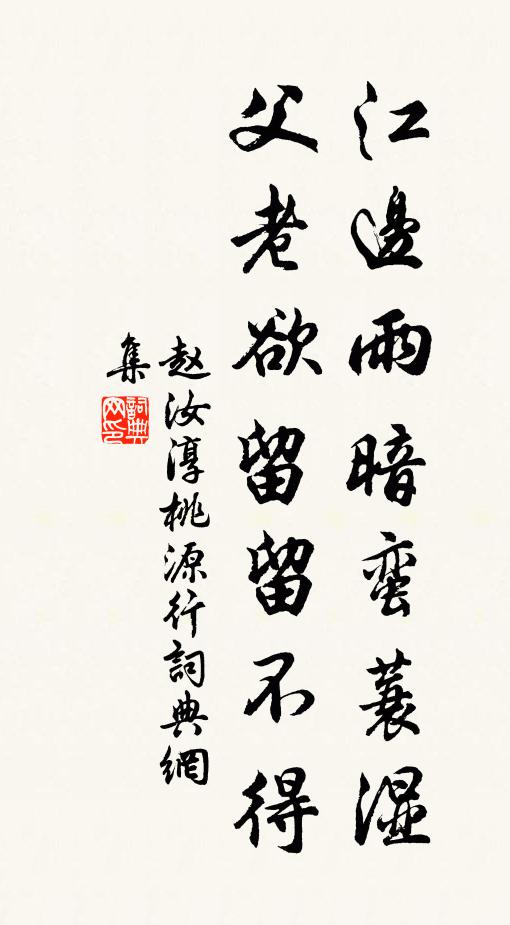 江邊雨暗蛮蓑湿
父老欲留留不得
赵汝淳桃源行詞典網
集
詞典网印